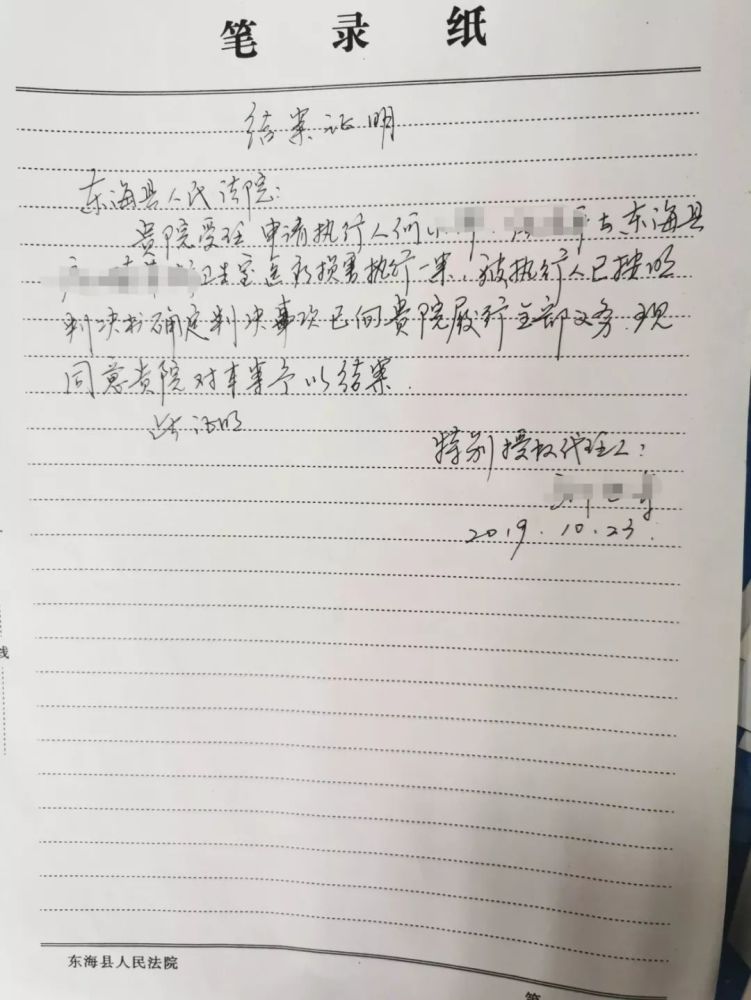 笔录纸
结案证明
东海县人民法院:
贵院受理申请执行人何小 与东海县
卫生室医疗损害执行一案,被执行人已按照
判决书确定判决事项已向贵院履行全部义务,现
同意贵院对本案予以结案.
此证明
特别授权代理人:
2019.10.23.
线
东海县人民法院
第